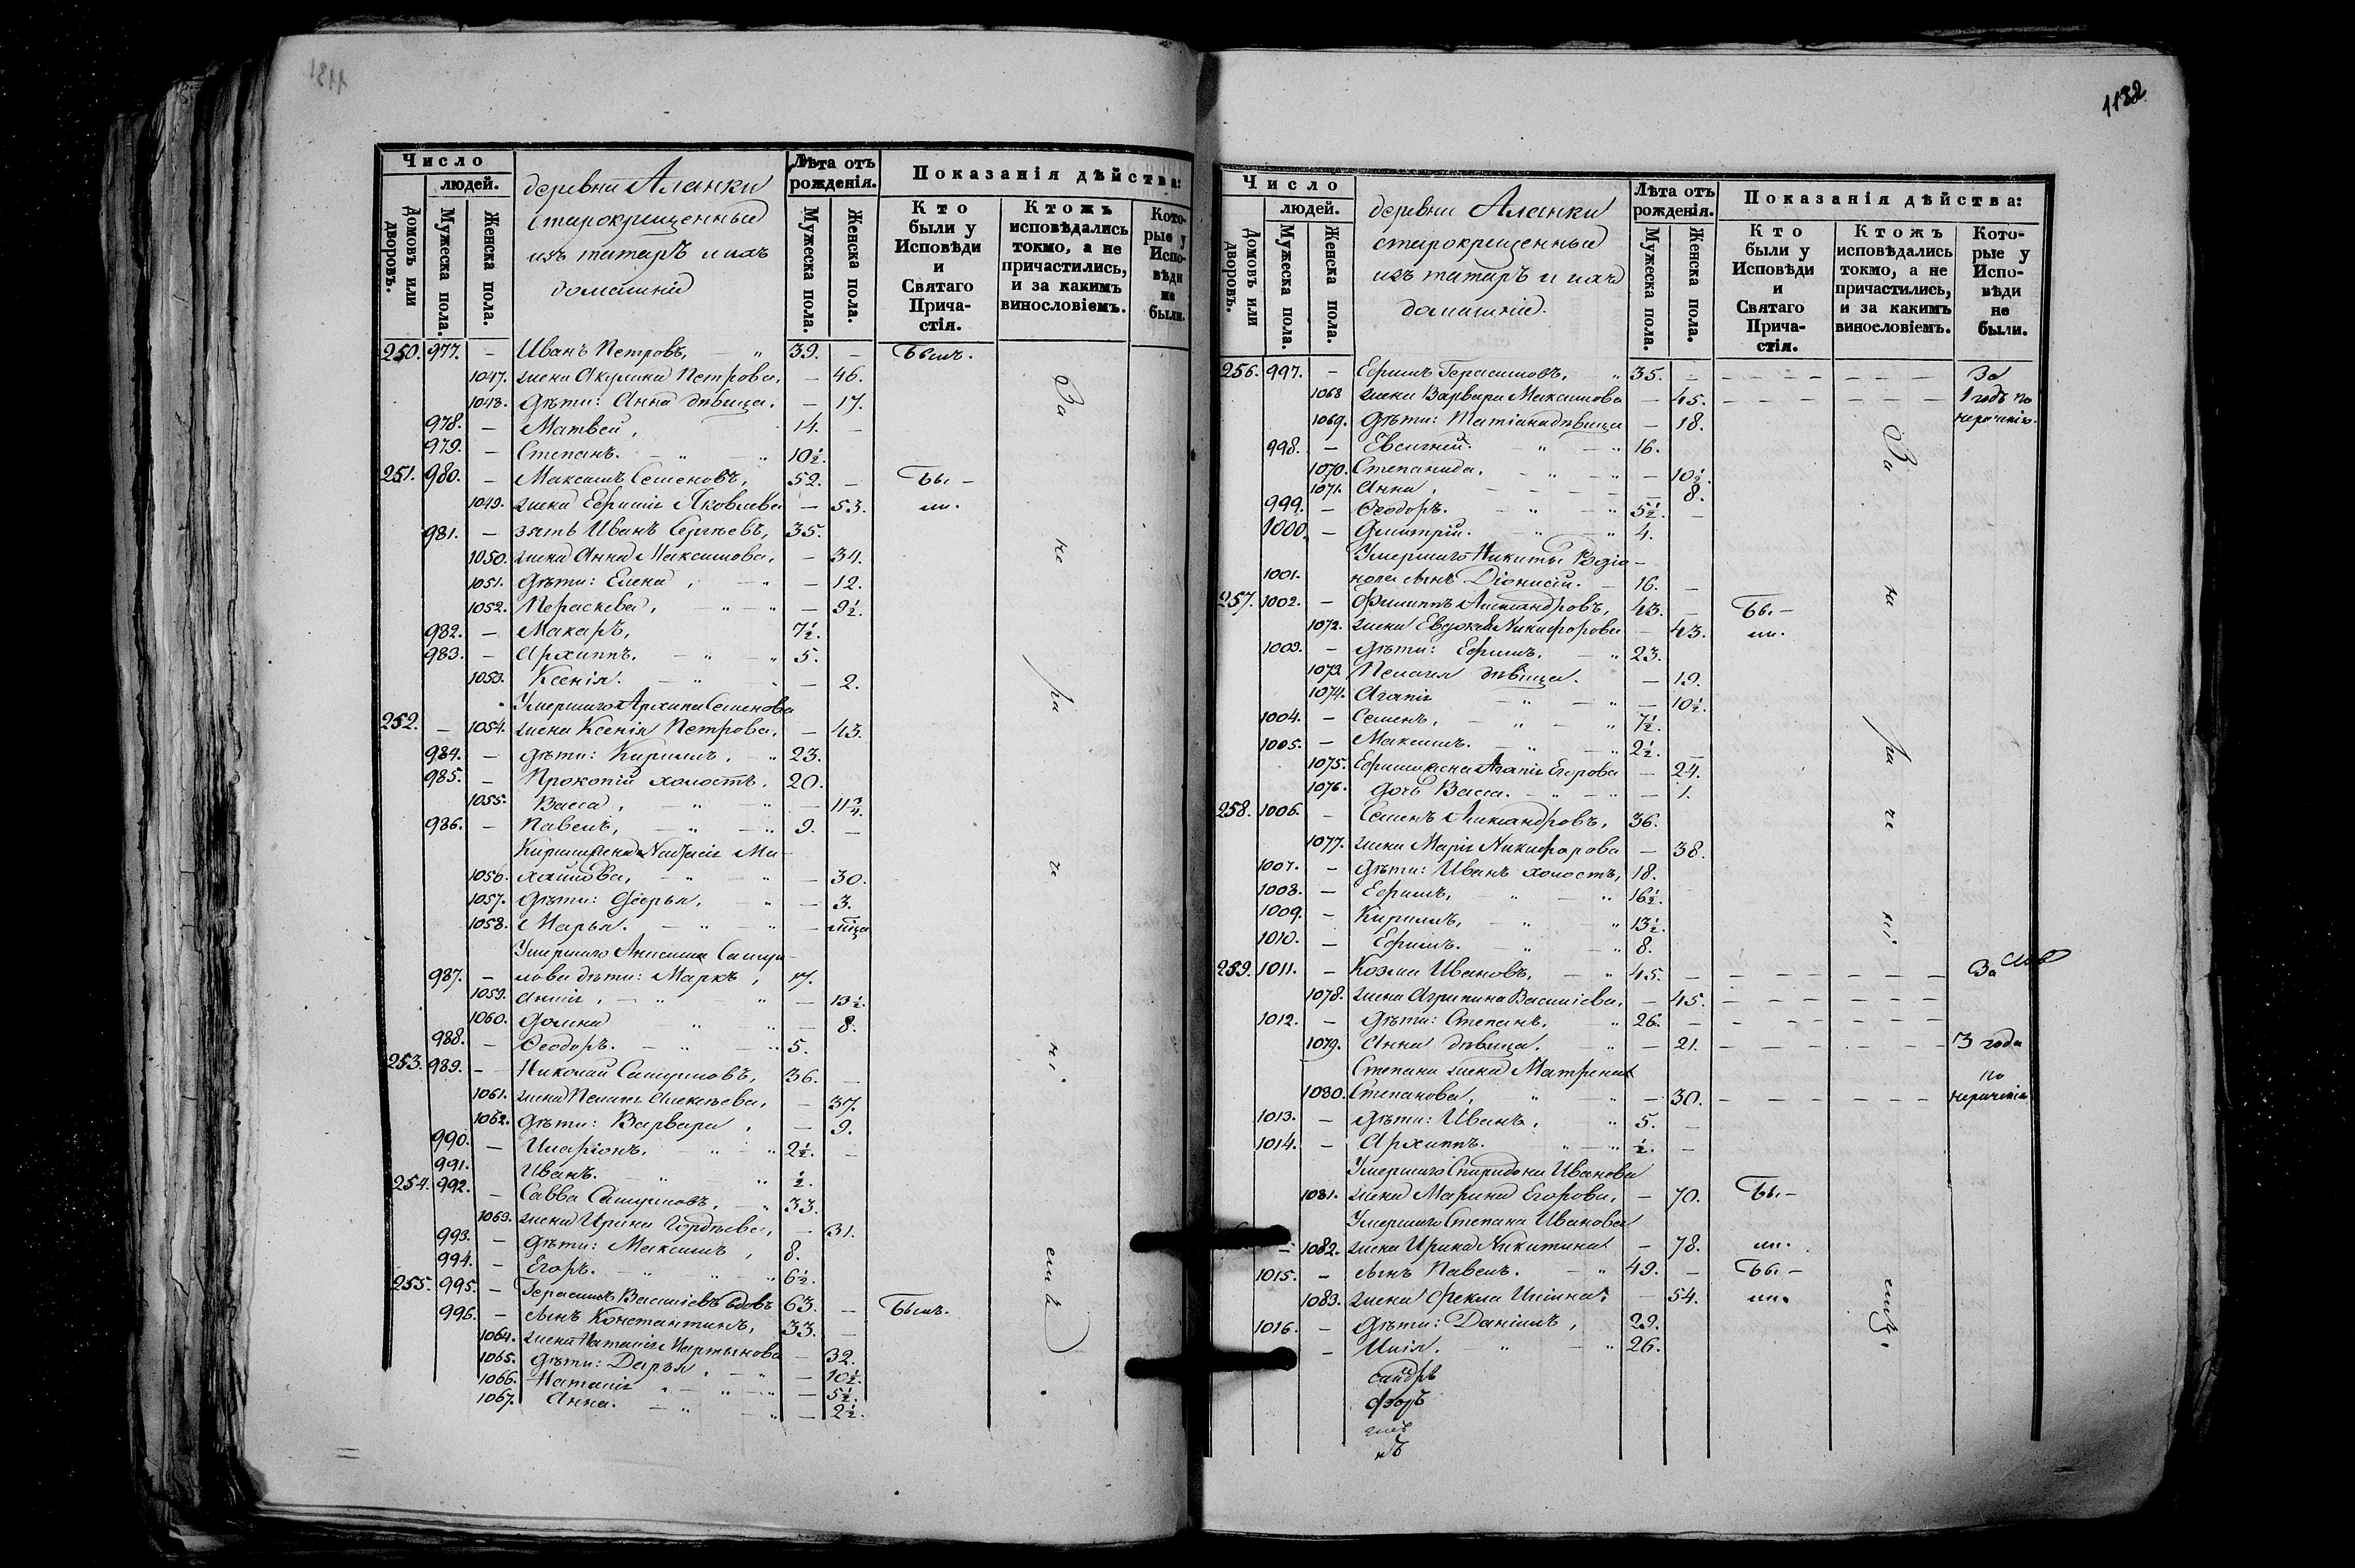 1131
Число
людей.
Домовъ или дворовъ.
Мужеска пола.
Женска пола.
деревни Аланки
старокрещенныя
изъ татаръ и ихъ
домашнія
Лѣта отъ рожденія.
Мужеска пола.
Женска пола.
Показанія дѣйства:
Кто были у Исповѣди и Святаго Причастія.
Ктожъ исповѣдались токмо, а не причастились, и за какимъ винословіемъ.
Которые у Исповѣди не были.
250. 977. — Иванъ Петровъ, — „ 39. — Былъ.
1047. жена Акулина Петрова, — 46.
1048. Дѣти: Анна дѣвица. — 17.
978. — Матвей, 14. —
979. — Степанъ. — „ — „ 10½.
251. 980. — Максимъ Семеновъ, 52. — Бы-
1049. жена Ефимія Яковлева — 53. ли.
981. — зять Иванъ Сергѣевъ, 35.
1050. жена Анна Максимова, — 34.
1051. Дѣти: Елена, — „ — 12.
1052. Параскева, — „ — „ — 9½.
982. — Макаръ, 7½.
983. — Архиппъ. — „ — „ 5.
1053. Ксенія. — „ — 2.
Умершаго Архипа Семенова
252. — 1054. жена Ксенія Петрова, — 43.
984. — дѣти: Кириллъ, — „ 23.
985. — Прокопій холостъ, 20.
1055. Васса, — „ — „ — 11¾.
986. — Павелъ, — „ — „ 9. —
Кирилла жена Наталія Ми-
1056. хайлова, — „ — „ — 30.
1057. Дѣти: Дарья, — „ — 3.
1058. Марья. — „ — „ —
Умершаго Анисима Самуи-
987. — лова дѣти: Маркъ, 17.
1059. Анна, — „ — „ — 13½.
1060. Домна „ — „ — 8.
988. — Ѳеодоръ. — „ — „ 5.
253. 989. — Николай Самуиловъ, 36. —
1061. жена Пелагія Алексѣева, — 37.
1062. Дѣти: Варвара, — 9.
990. — Иларіонъ, — „ — „ 2½. —
991. Иванъ. — „ — „ ½.
254. 992. — Савва Самуиловъ, — „ 33.
1063. жена Ирина Гордѣева, — 31.
993. — Дѣти: Максимъ, 8.
994. — Егоръ. — „ — „ 6½.
255. 995. — Герасимъ Василіевъ вдовъ 63. — Былъ.
996. — сынъ Константинъ, 33. —
1064. жена Наталія Мартынова — 32.
1065. Дѣти: Дарья, — „ — 10½.
1066. Наталія, — „ — „ — 5½.
1067. Анна. — „ — „ — 2½.
За не ра че ні емъ
1132
Число
людей.
Домовъ или дворовъ.
Мужеска пола.
Женска пола.
деревни Аланки
старокрещенныя
изъ татаръ и ихъ
домашнія.
Лѣта отъ рожденія.
Мужеска пола.
Женска пола.
Показанія дѣйства:
Кто были у Исповѣди и Святаго Причастія.
Ктожъ исповѣдались токмо, а не причастились, и за какимъ винословіемъ.
Которые у Исповѣди не были.
256. 997. — Ефимъ Герасимовъ, „ 35. — За
1068 жена Варвара Максимова — 45. 1 годъ по
1069. Дѣти: Татіана дѣвица — 18. нераченію.
998. — Евсигній. „ — „ 16.
1070. Степанида, — „ — „ — 10½.
1071. Анна, — — — — 8.
999. — Ѳеодоръ. — „ — „ 5½. —
1000. — Димитрій. — „ — „ 4.
Умершаго Никиты Родіо-
1001. нова сынъ Діонисій. — 16. —
257. 1002. — Филиппъ Александровъ, 43. — Бы-
1072. жена Евдокія Никифорова — 43. ли.
1003. — Дѣти: Ефимъ. — „ 23.
1073. Пелагія дѣвица. — 19.
1074. Агапія — „ — „ — 10½.
1004. — Семенъ, — „ — „ 7½.
1005. — Максимъ. — „ — „ 2½. —
1075. Ефима жена Агапія Егорова — 24.
1076. дочь Васса. — „ — „ — 1.
258. 1006. — Семенъ Александровъ, 36.
1077. жена Марія Никифорова — 38.
1007. — Дѣти: Иванъ холостъ, 18.
1008. — Ефимъ, — „ — „ 16½.
1009. — Кириллъ, — „ — „ 13½.
1010. — Ефимъ. — „ — „ 8.
259. 1011. — Козма Ивановъ, — „ 45. — За
1078. жена Агрипина Василіева, — 45.
1012. — Дѣти: Степанъ, „ 26. —
1079. Анна дѣвица. — „ — 21. 3 года
Степана жена Матрена
1080. Степанова, „ — „ — 30. по нераченію
1013. — Дѣти: Иванъ, „ 5. —
1014. — Архиппъ. „ — „ ½. —
Умершаго Спиридона Иванова
1081. жена Марина Егорова, — 70. Бы-
Умершаго Степана Иванова
— 1082. жена Ирина Никитина — 78. ли.
1015. — сынъ Павелъ. — „ 49. — Бы-
1083. жена Фекла Ильина. — 54. ли.
1016. — Дѣти: Даніилъ, 29.
— Илія. „ — „ 26.
За не ра че ні емъ.